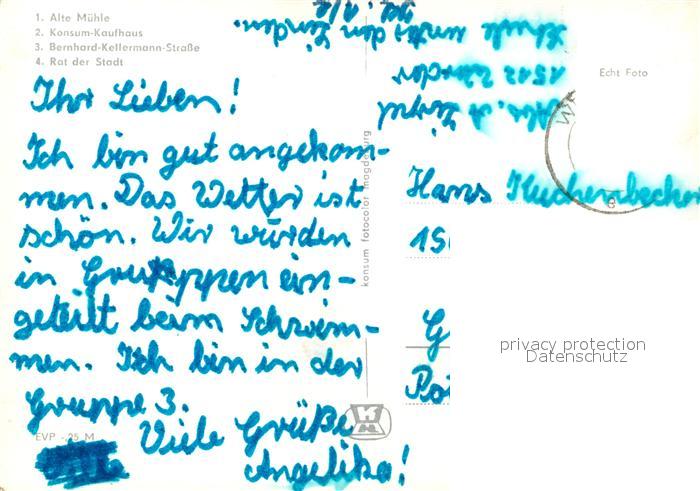 1. Alte Mühle
2. Konsum-Kaufhaus
3. Bernhard-Kellermann-Straße
4. Rat der Stadt
Ihr Lieben!
Ich bin gut angekom-
men. Das Wetter ist
schön. Wir würden
in Gruppen ein-
geteilt beim Schwim-
men. Ich bin in der
Gruppe 3.
Viele Grüße
Angelika!
EVP -,25 M
konsum fotocolor magdeburg
Echt Foto
Abs. A.
1512 Werder
unter den Linden.
Hans Kuchenbecker
privacy protection
Datenschutz